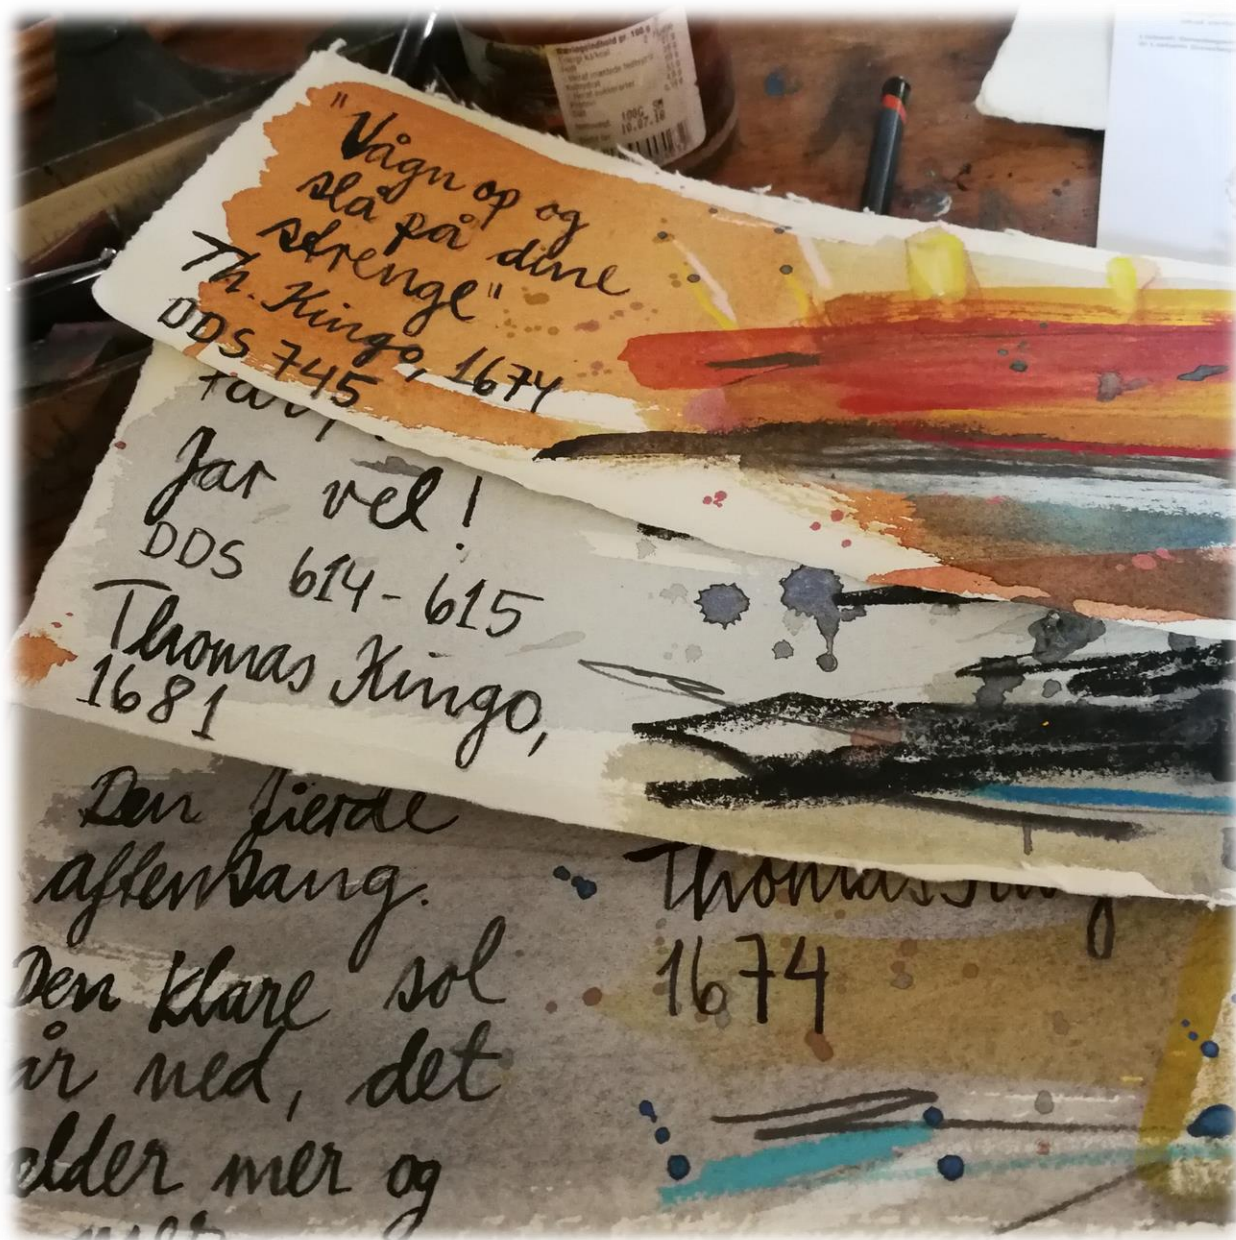 "Vågn op og
slå på dine
strenge"
Th. Kingo, 1674
DDS 745
Far vel!
DDS 614-615
Thomas Kingo,
1681
Den fjerde
aftensang.
Den klare sol
går ned, det
kvelder mer og
mer
Thomas Kingo
1674
100G
10.07.18